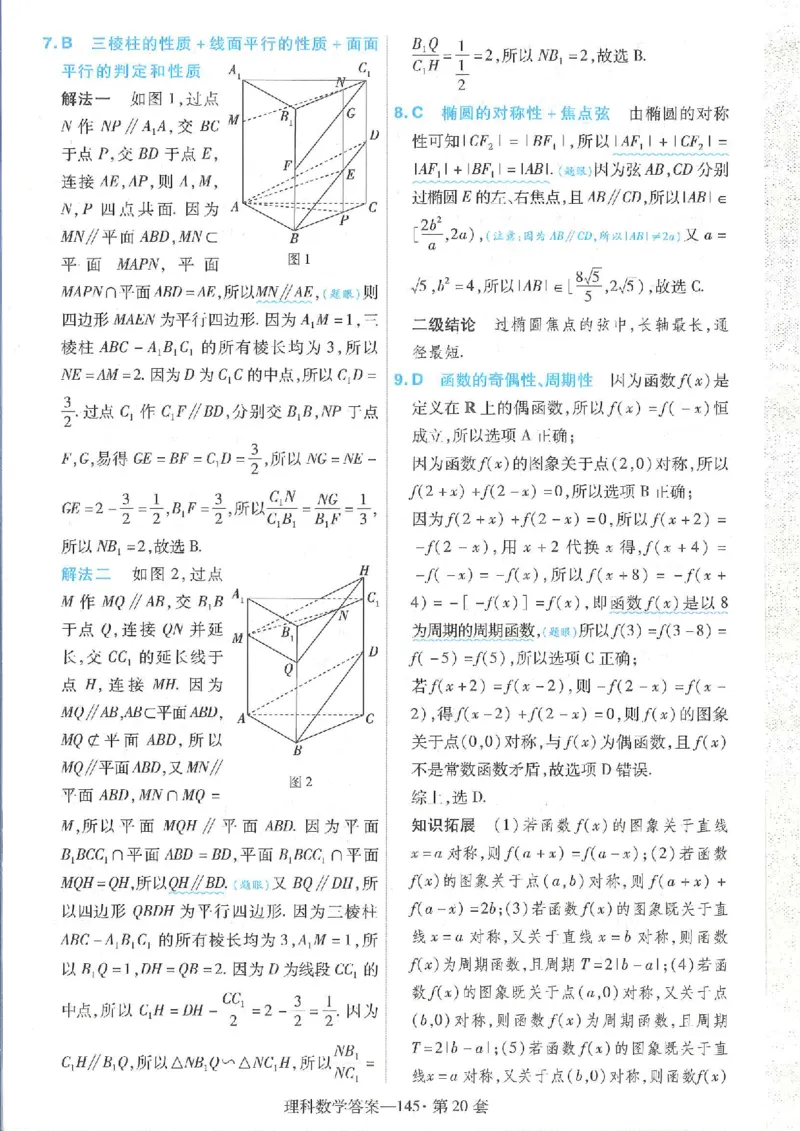 7.B 三棱柱的性质+线面平行的性质+面面
平行的判定和性质
解法一 如图1,过点
N作NP∥A₁A,交BC
于点P,交BD于点E,
连接AE,AP,则A,M,
N,P四点共面.因为
MN∥平面ABD,MN⊂
平面MAPN,平面
A₁
C₁
N
M
B₁
G
D
F
E
A
C
P
B
图1
MAPN∩平面ABD=AE,所以MN∥AE,(题眼)则
四边形MAEN为平行四边形.因为A₁M=1,三
棱柱ABC-A₁B₁C₁的所有棱长均为3,所以
NE=AM=2.因为D为C₁C的中点,所以C₁D=
3/2.过点C₁作C₁F∥BD,分别交B₁B,NP于点
F,G,易得GE=BF=C₁D=3/2,所以NG=NE-
GE=2-3/2=1/2,B₁F=3/2,所以C₁N/C₁B₁=NG/B₁F=1/3,
所以NB₁=2,故选B.
解法二 如图2,过点
M作MQ∥AB,交B₁B
于点Q,连接QN并延
长,交CC₁的延长线于
点H,连接MH.因为
MQ∥AB,AB⊂平面ABD,
MQ⊄平面ABD,所以
MQ∥平面ABD,又MN∥
平面ABD,MN∩MQ=
H
A₁
C₁
N
M
B₁
Q
D
A
C
B
图2
M,所以平面MQH∥平面ABD.因为平面
B₁BCC₁∩平面ABD=BD,平面B₁BCC₁∩平面
MQH=QH,所以QH∥BD.(题眼)又BQ∥DH,所
以四边形QBDH为平行四边形.因为三棱柱
ABC-A₁B₁C₁的所有棱长均为3,A₁M=1,所
以B₁Q=1,DH=QB=2.因为D为线段CC₁的
中点,所以C₁H=DH-CC₁/2=2-3/2=1/2.因为
C₁H∥B₁Q,所以△NB₁Q∽△NC₁H,所以NB₁/NC₁=
B₁Q/C₁H=1/(1/2)=2,所以NB₁=2,故选B.
8.C 椭圆的对称性+焦点弦 由椭圆的对称
性可知|CF₂|=|BF₁|,所以|AF₁|+|CF₂|=
|AF₁|+|BF₁|=|AB|.(题眼)因为弦AB,CD分别
过椭圆E的左、右焦点,且AB∥CD,所以|AB|∈
[2b²/a,2a),(注意:因为AB∥CD,所以|AB|≠2a)又a=
√5,b²=4,所以|AB|∈[8√5/5,2√5),故选C.
二级结论 过椭圆焦点的弦中,长轴最长,通
径最短.
9.D 函数的奇偶性、周期性 因为函数f(x)是
定义在R上的偶函数,所以f(x)=f(-x)恒
成立,所以选项A正确;
因为函数f(x)的图象关于点(2,0)对称,所以
f(2+x)+f(2-x)=0,所以选项B正确;
因为f(2+x)+f(2-x)=0,所以f(x+2)=
-f(2-x),用x+2代换x得,f(x+4)=
-f(-x)=-f(x),所以f(x+8)=-f(x+
4)=-[-f(x)]=f(x),即函数f(x)是以8
为周期的周期函数,(题眼)所以f(3)=f(3-8)=
f(-5)=f(5),所以选项C正确;
若f(x+2)=f(x-2),则-f(2-x)=f(x-
2),得f(x-2)+f(2-x)=0,则f(x)的图象
关于点(0,0)对称,与f(x)为偶函数,且f(x)
不是常数函数矛盾,故选项D错误.
综上,选D.
知识拓展 (1)若函数f(x)的图象关于直线
x=a对称,则f(a+x)=f(a-x);(2)若函数
f(x)的图象关于点(a,b)对称,则f(a+x)+
f(a-x)=2b;(3)若函数f(x)的图象既关于直
线x=a对称,又关于直线x=b对称,则函数
f(x)为周期函数,且周期T=2|b-a|;(4)若函
数f(x)的图象既关于点(a,0)对称,又关于点
(b,0)对称,则函数f(x)为周期函数,且周期
T=2|b-a|;(5)若函数f(x)的图象既关于直
线x=a对称,又关于点(b,0)对称,则函数f(x)
理科数学答案—145·第20套